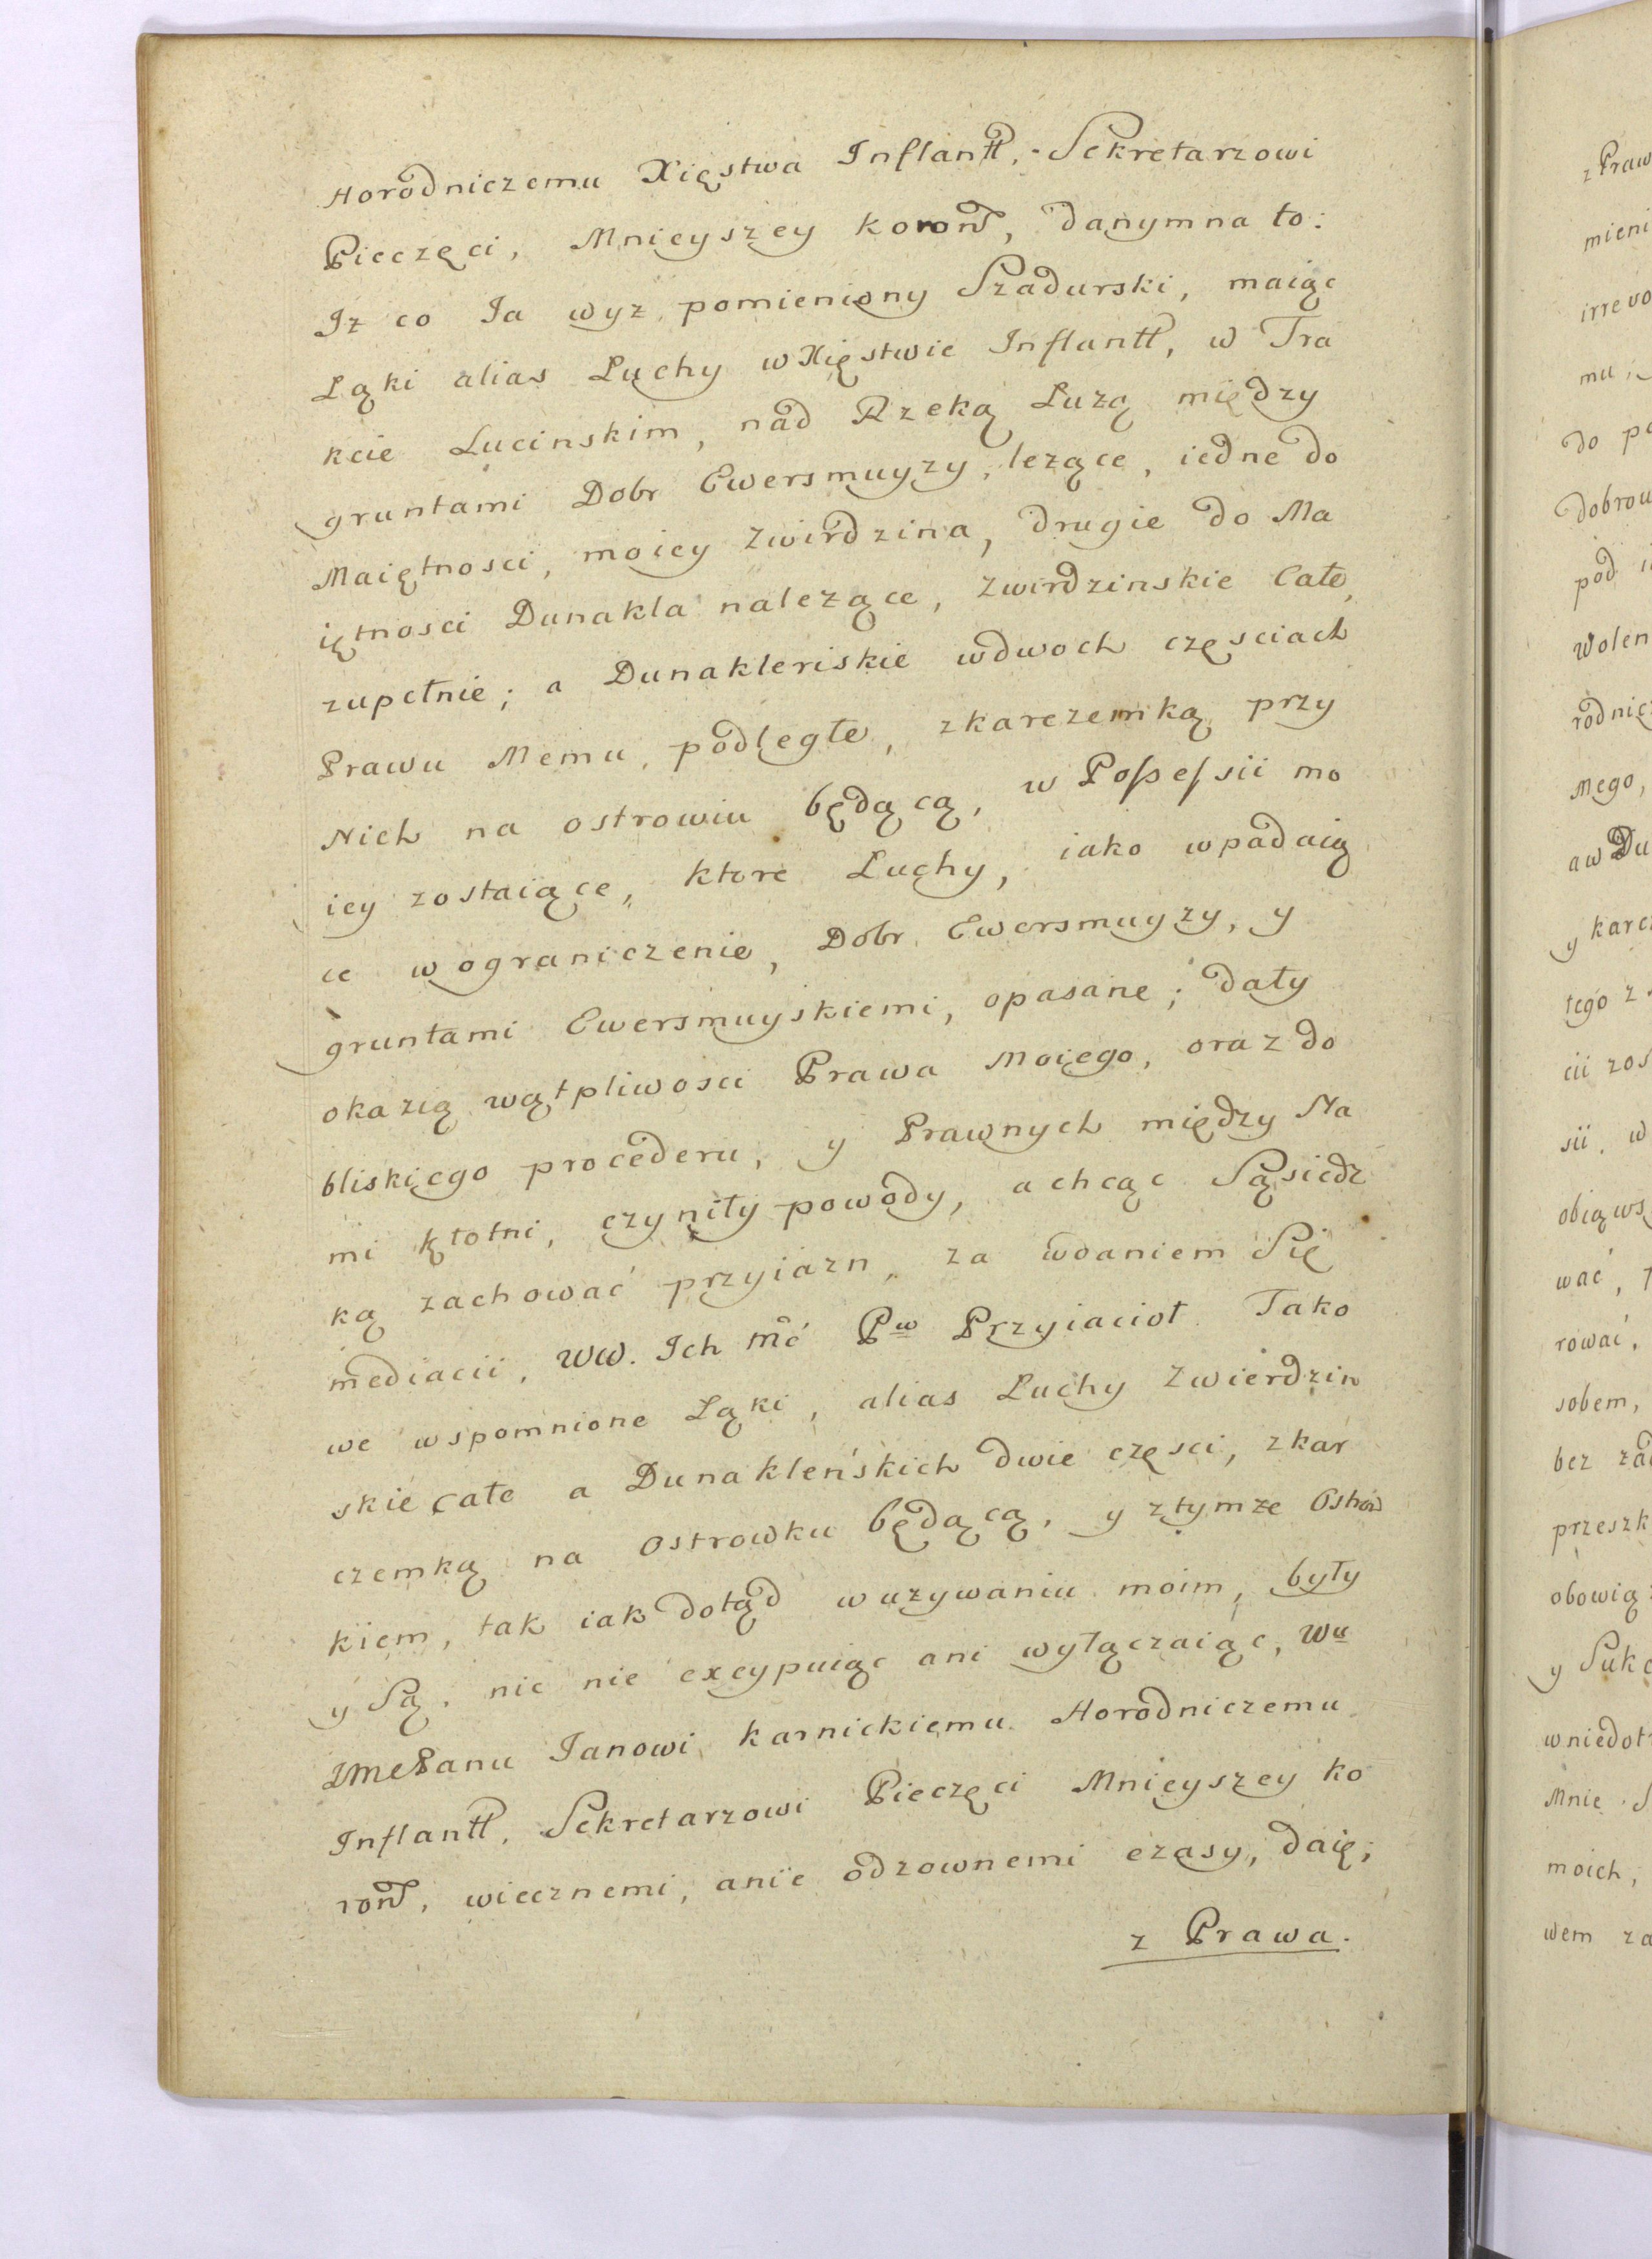 Horodniczemu Xięstwa Inflantt, Sekretarzowi
Pieczęci, Mnieyszey koronn, danymna to:
Iż co Ia wyż pomieniony Szadurski, maiąc
Łąki alias Luchy w Xięstwie Inflantt, w Tra
kcie Lucinskim, nad Rzeką Lużą między
gruntami Dobr Ewersmuyzy, leżące, iedne do
Maiętnosci, moiey Zwirdzina, drugie do Ma
iętnosci Dunakla należące, Zwirdzinskie Całe,
zupełnie; a Dunakleńskie wdwoch częsciach
Prawu Memu, podległe, zkarczemką przy
Nich na ostrowiu będącą, w Possessii mo
iey zostaiące, ktore Luchy, iako wpadaią
ce w ograniczenie, Dobr Ewersmuyzy, y
gruntami Ewersmuyskiemi, opasane; dały
okazią wątpliwosci Prawa Moiego, oraz do
bliskiego procederu, y Prawnych między Na
mi kłotni, czyniły powody, a chcąc Sąsiedz
ką zachować przyiazn, za wdaniem Się
mediacii, WW. Ich Mć Pw Przyiacioł Tako
we wspomnione Łąki, alias Luchy Zwierdzin
skie całe a Dunakleńskich dwie częsci, zkar
czemką na Ostrowku będącą, y ztymże Ostrow
kiem, tak iak dotąd w używaniu moim, były
y Są, nic nie excypuiąc ani wyłączaiąc, Wu
JMcPanu Janowi karnickiemu Horodniczemu
Inflantt, Sekretarzowi Pieczęci Mnieyszey ko
ronn, wiecznemi, anie odzownemi czasy, daię;
z Prawa.
z Praw
mieni
irrevo
mu,
do po
dobrow
pod
Wolen
rodnic
mego,
aw Du
y karc
tego z
cii zos
sii, w
obiąws
wać,
rować,
sobem,
bez
przeszk
obowiąz
y Sukc
wniedot
Mnie S
moich,
wem za